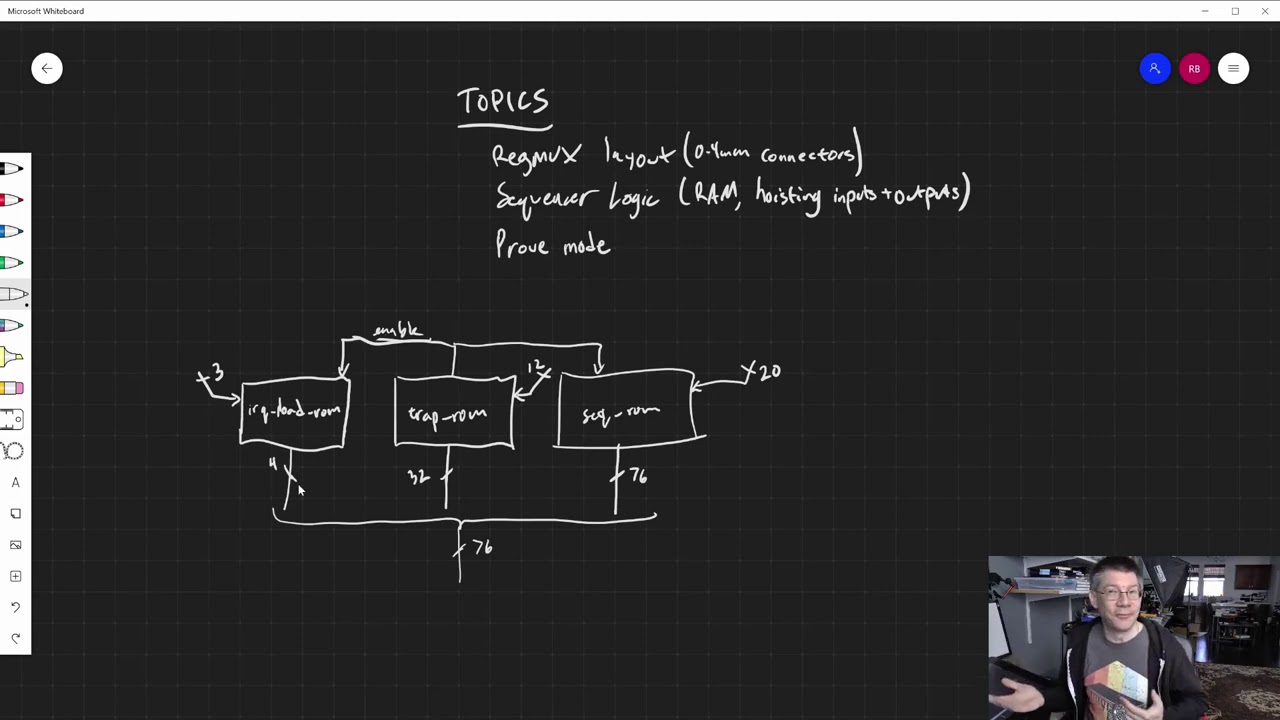 Microsoft Whiteboard
RB
TOPICS
RegMUX layout (0.4mm connectors)
Sequencer Logic (RAM, hoisting inputs + outputs)
Prove mode
enable
3
12
20
irq-load-rom
trap-rom
seq-rom
4
32
76
76
A